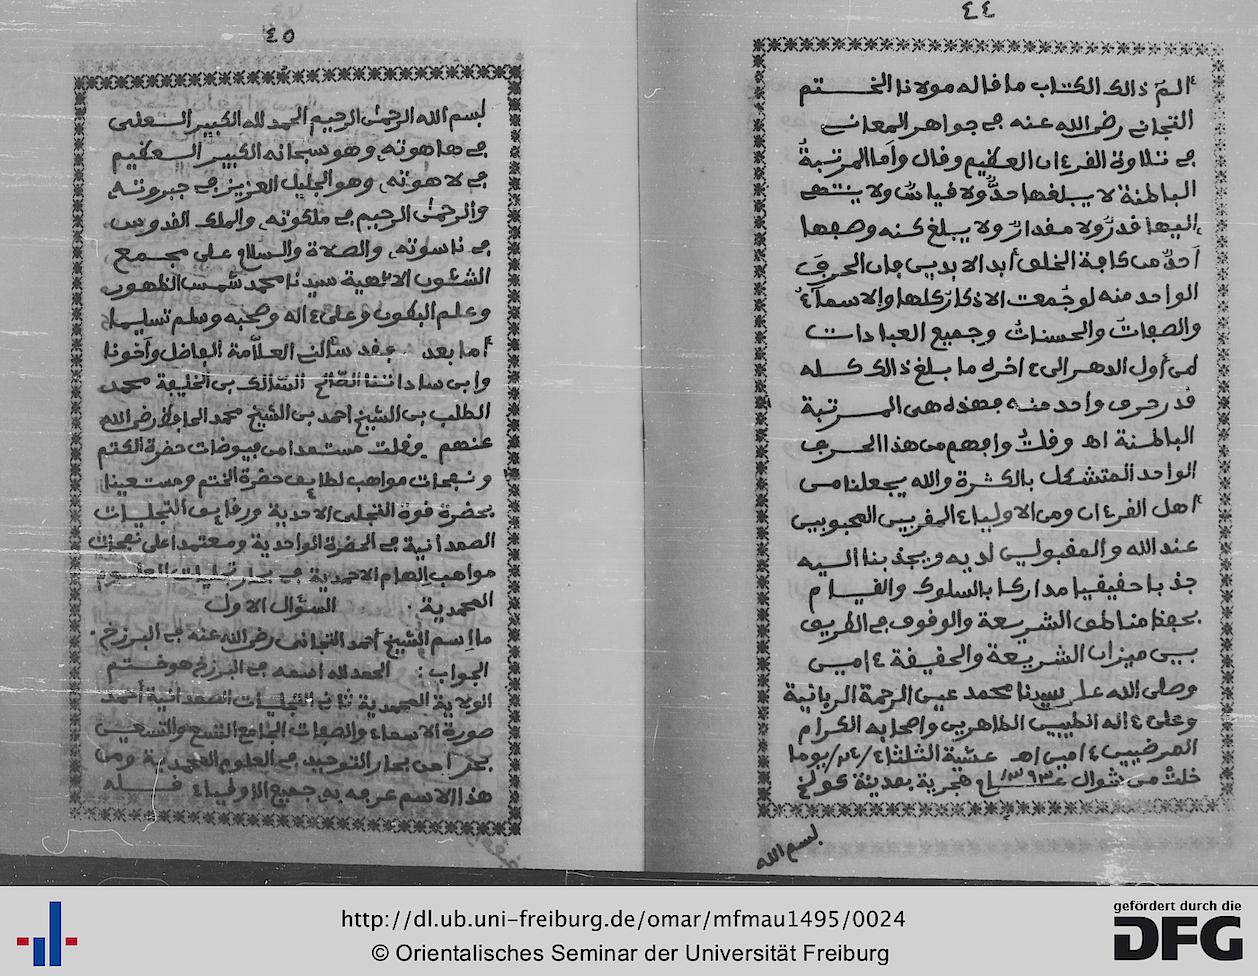 ٤٤
الم ذالك الكتاب ما فاله مولانا الختم
التجاني رضي الله عنه في جواهر المعاني
في تلاوة الفرءان العظيم وفال وأما المرتبة
الباطنة لا يبلغها حدٌّ ولا فياسٌ ولا ينتهي
إليها فدرٌ ولا مفدارٌ ولا يبلغ كنه وصفها
أحدٌ من كافة الخلف أبد الابدين فإن الحرف
الواحد منه لو جُمعت الاذكار كلها والاسماءُ
والصفاتُ والحسناتُ وجميع العبادات
من أول الدهر إلى ءاخره ما بلغ ذالك كله
فدر حرف واحد منه فهذه هي المرتبة
الباطنة اهـ وفلتُ وافهم من هذا الحرف
الواحد المتشكل بالكثرة والله يجعلنا من
أهل الفرءان ومن الاولياء المفربين المحبوبين
عند الله والمفبولين لديه ويجذبنا اليه
جذبا حفيفيا مداركا بالسلوك والفيام
بحفظ مناطف الشريعة والوفوف في الطريف
بين ميزان الشريعة والحفيفة ءامين
وصلى الله على سيدنا محمد عين الرحمة الربانية
وعلى ءاله الطيبين الطاهرين واصحابه الكرام
المرضيين ءامين اهـ عشية الثلثاء يوما
خلتْ من شوال عام ١٣٩٣ هجرية بمدينة كولخ
بسم الله
٤٥
بسم الله الرحمن الرحيم الحمد لله الكبير المتعلي
في هاهوته وهو سبحانه الكبير العظيم
في لاهوته وهو الجليل العزيز في جبروته
والرحمن الرحيم في ملكوته والملك الفدوس
في ناسوته والصلاة والسلام على مجمع
الشئون الالهية سيدنا محمد شمس الظهور
وعلم البطون وعلى ءاله وصحبه وسلم تسليما
أما بعد ففد سألني العلامة الفاضل وأخونا
وابن ساداتنا الصالح السالك بن الخليفة محمد
الطلب بن الشيخ احمد بن الشيخ محمد الحافظ رضي الله
عنهم وفلت مستمدا من فيوضات حضرة الكتم
ونفحات مواهب لطايف حضرة الختم ومستعينا
بحضرة فوة التجلي الاحدية ورفايف التجليات
الصمدانية في الحضرة الواحدية ومعتمدا على نفحات
مواهب إلهام الاحمدية في بحار تجليات العلوم
المحمدية السؤال الاول
ما اسم الشيخ أحمد التجاني رضي الله عنه في البرزخ
الجواب : الحمد لله اسمه في البرزخ هو ختم
الولاية المحمدية ثاني التجليات الصمدانية أحمد
صورة الاسماء والصفات الجامع التسع والتسعين
بحرا من بحار التوحيد في العلوم المحمدية ومن
هذا الاسم عرفه به جميع الاولياء فله
http://dl.ub.uni-freiburg.de/omar/mfmau1495/0024
© Orientalisches Seminar der Universität Freiburg
gefördert durch die
DFG